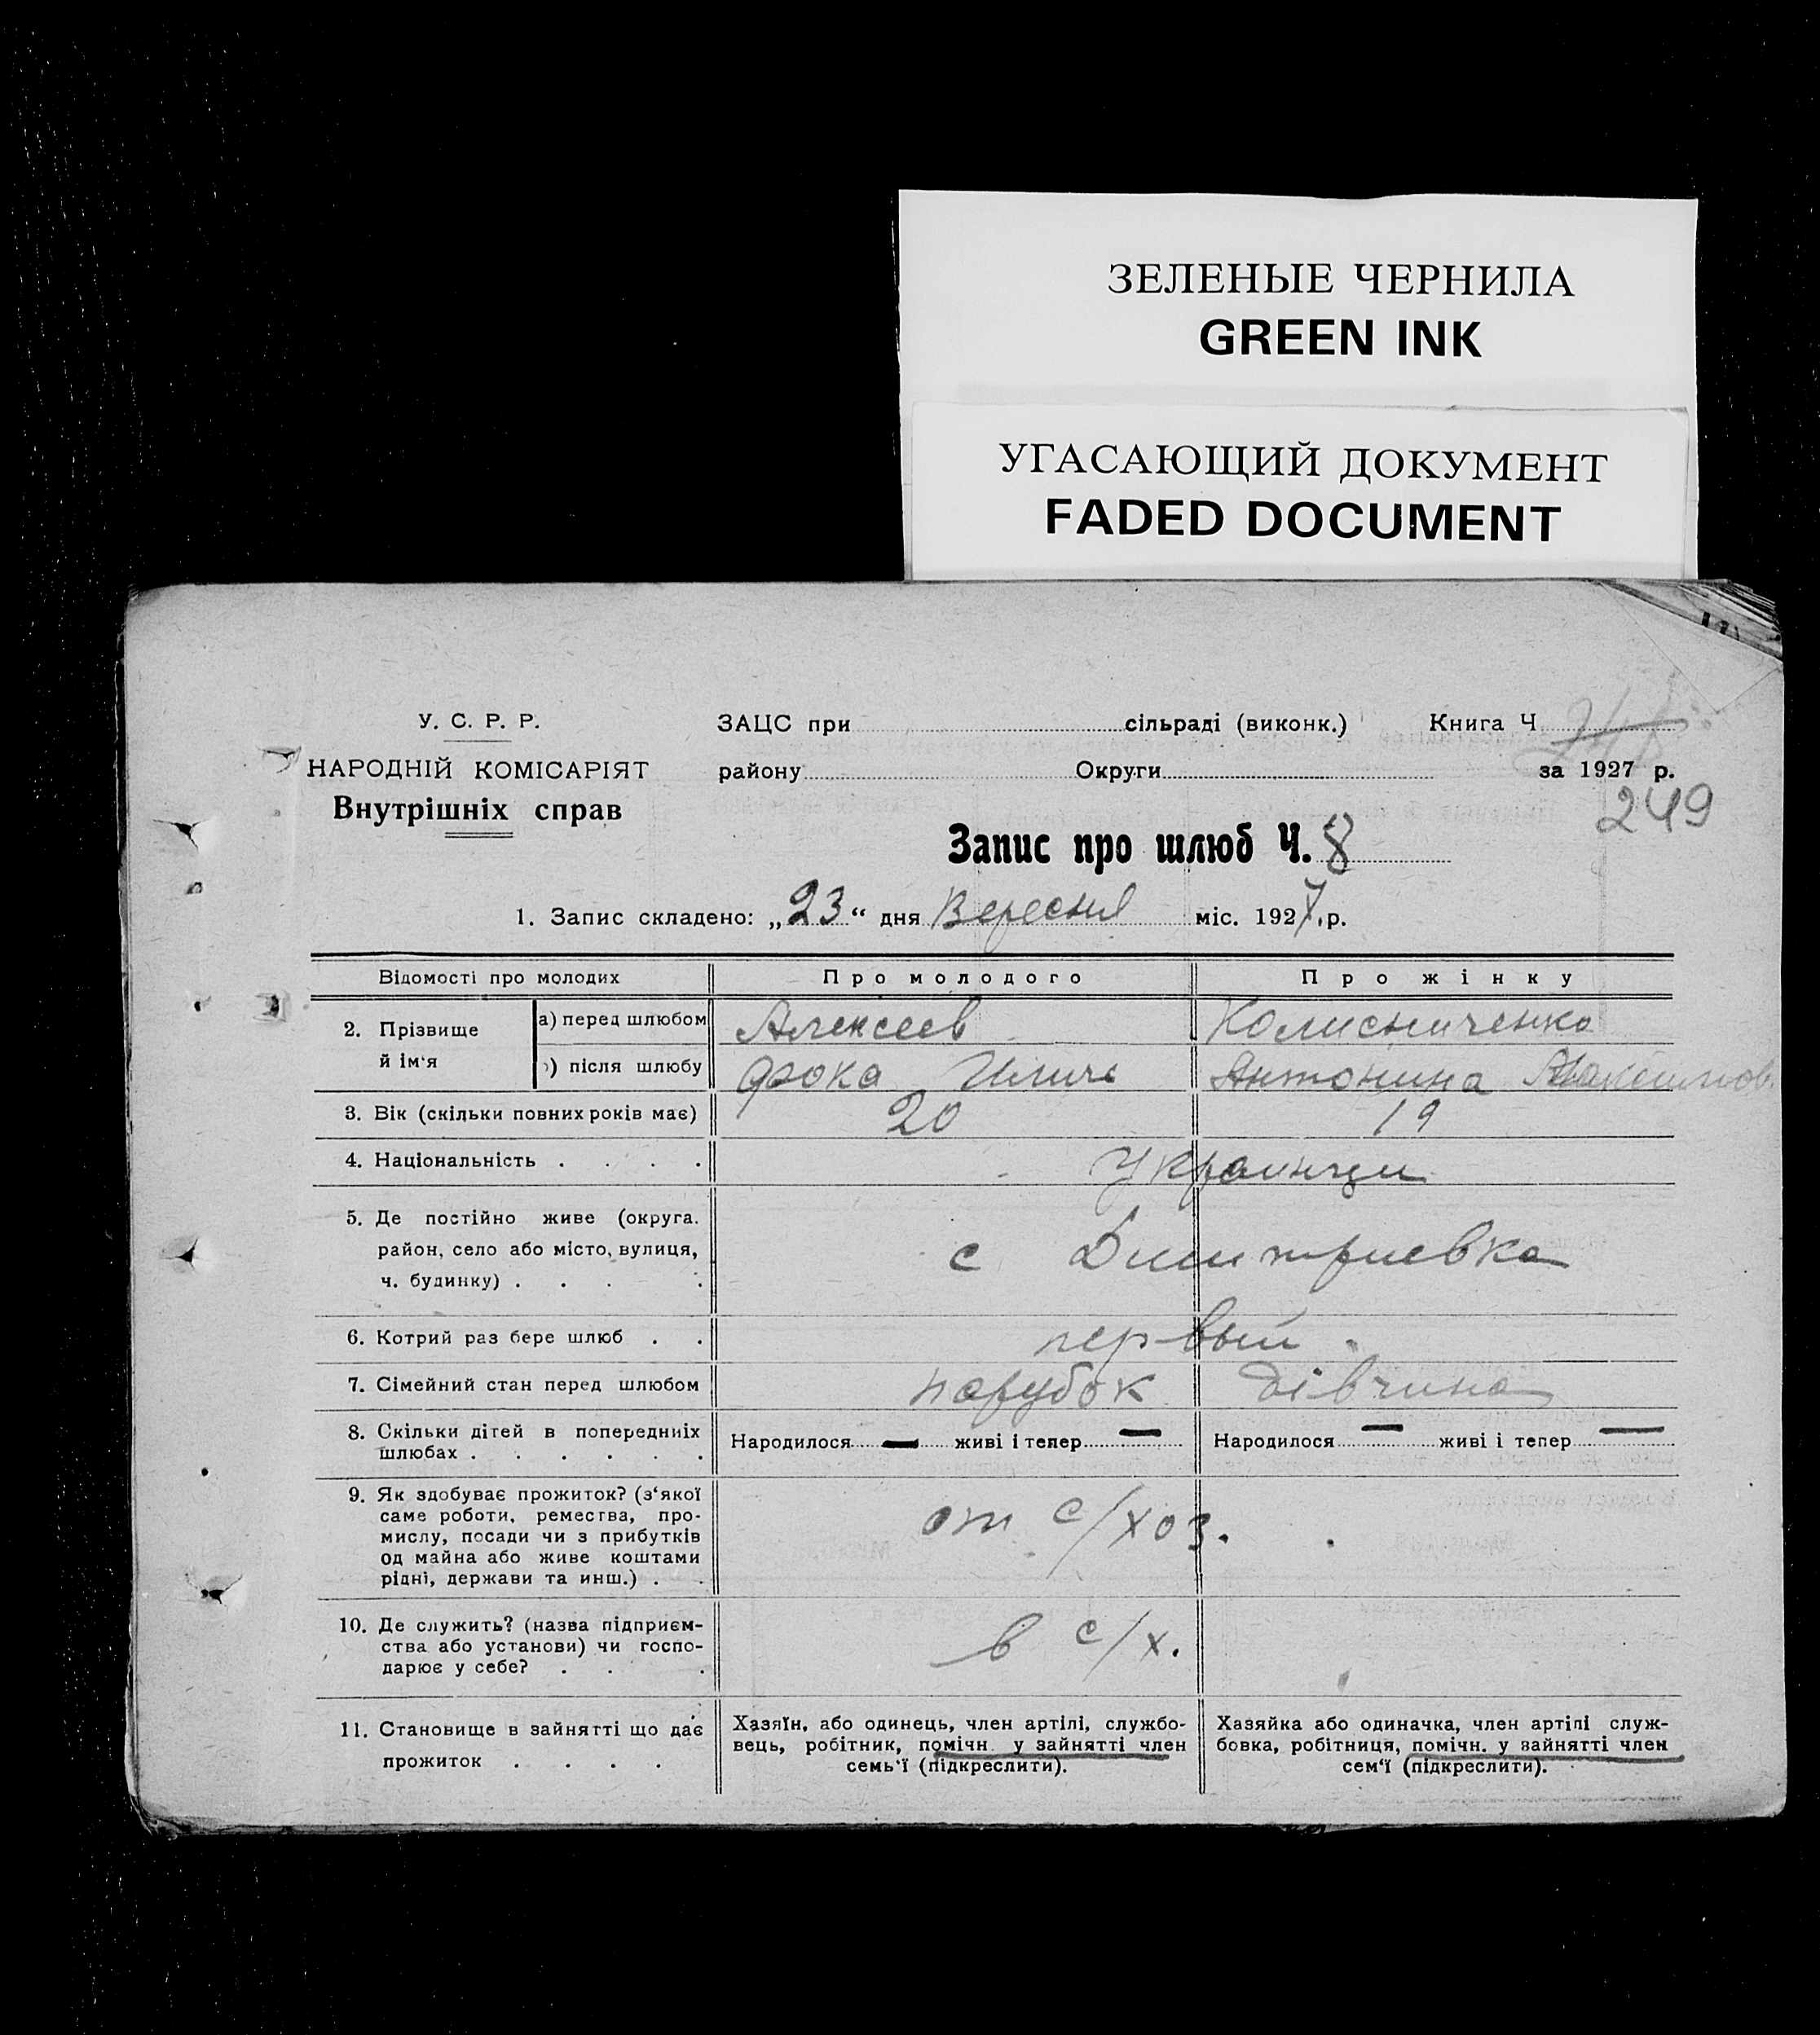 ЗЕЛЕНЫЕ ЧЕРНИЛА
GREEN INK
УГАСАЮЩИЙ ДОКУМЕНТ
FADED DOCUMENT
У. С. Р. Р.
НАРОДНІЙ КОМІСАРІЯТ
Внутрішніх справ
ЗАЦС при сільраді (виконк.) Книга Ч
району Округи за 1927 р.
249
Запис про шлюб Ч. 8
1. Запис складено: „23“ дня Вересня міс. 1927 р.
Відомості про молодих Про молодого Про жінку
2. Прізвище й ім‘я
а) перед шлюбом Алексеев Колисниченко
) після шлюбу Фока Илич Антонина Максимов.
3. Вік (скільки повних років має) 20 19
4. Національність . . . . Украинци
5. Де постійно живе (округа.
район, село або місто, вулиця,
ч. будинку) . . . .
с Димитриевка
6. Котрий раз бере шлюб . . первый
7. Сімейний стан перед шлюбом парубок дівчина
8. Скільки дітей в попередніх
шлюбах . . . . . .
Народилося — живі і тепер — Народилося — живі і тепер —
9. Як здобуває прожиток? (з‘якої
саме роботи, ремества, про-
мислу, посади чи з прибутків
од майна або живе коштами
рідні, держави та инш.) . .
от с/хоз.
10. Де служить? (назва підприєм-
ства або установи) чи госпо-
дарює у себе? . . .
в с/х.
11. Становище в зайнятті що дає
прожиток . . . .
Хазяїн, або одинець, член артілі, службо-
вець, робітник, помічн. у зайнятті член
семь‘ї (підкреслити).
Хазяйка або одиначка, член артілі служ-
бовка, робітниця, помічн. у зайнятті член
сем‘ї (підкреслити).